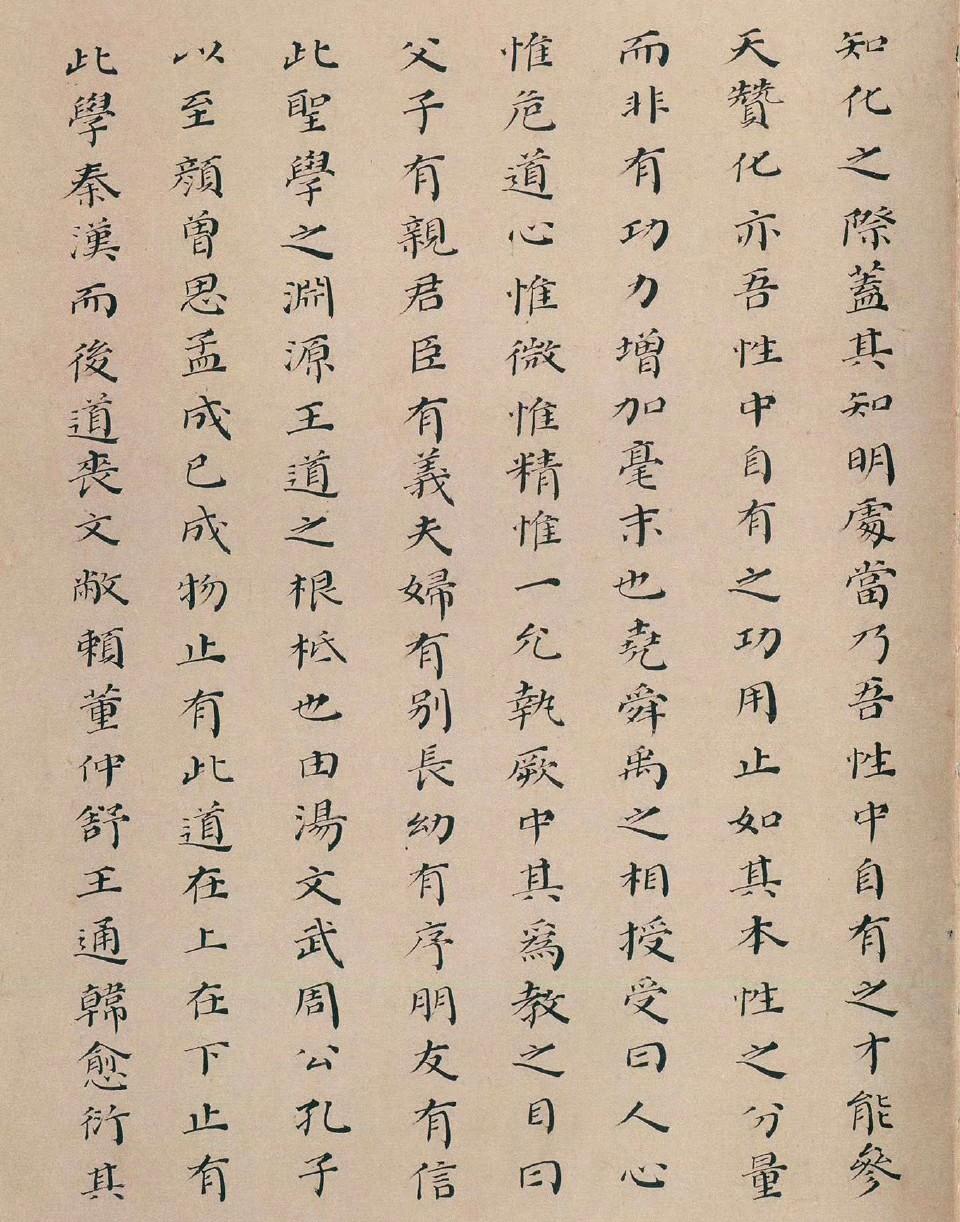 知化之際蓋其知明處當乃吾性中自有之才能參
天贊化亦吾性中自有之功用止如其本性之分量
而非有功力增加毫末也堯舜禹之相授受曰人心
惟危道心惟微惟精惟一允執厥中其爲教之目曰
父子有親君臣有義夫婦有别長幼有序朋友有信
此聖學之淵源王道之根柢也由湯文武周公孔子
以至顔曾思孟成已成物止有此道在上在下止有
此學秦漢而後道喪文敝賴董仲舒王通韓愈衍其